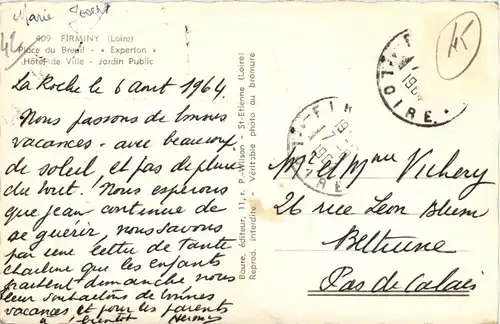 Marie Josept
42
409 FIRMINY (Loire)
Place du Breuil - « Experton »
Hôtel de Ville - Jardin Public
La Roche le 6 Aout 1964.
Nous passons de bonnes
vacances - avec beaucoup
de soleil, et pas de pluie
du tout! Nous esperons
que Jean continue de
se guérir, nous savons
par une lettre de Tante
Charline que les enfants
partent dimanche, nous
leur souhaitons de bonnes
vacances et pour les parents
à bientôt
Boure, éditeur, 11, r. P.-Wilson - St-Etienne (Loire)
Reprod. interdite - Véritable photo au bromure
LOIRE
45
Mr et Mme Vichery
26 rue Leon Blum
Bethune
Pas de Calais